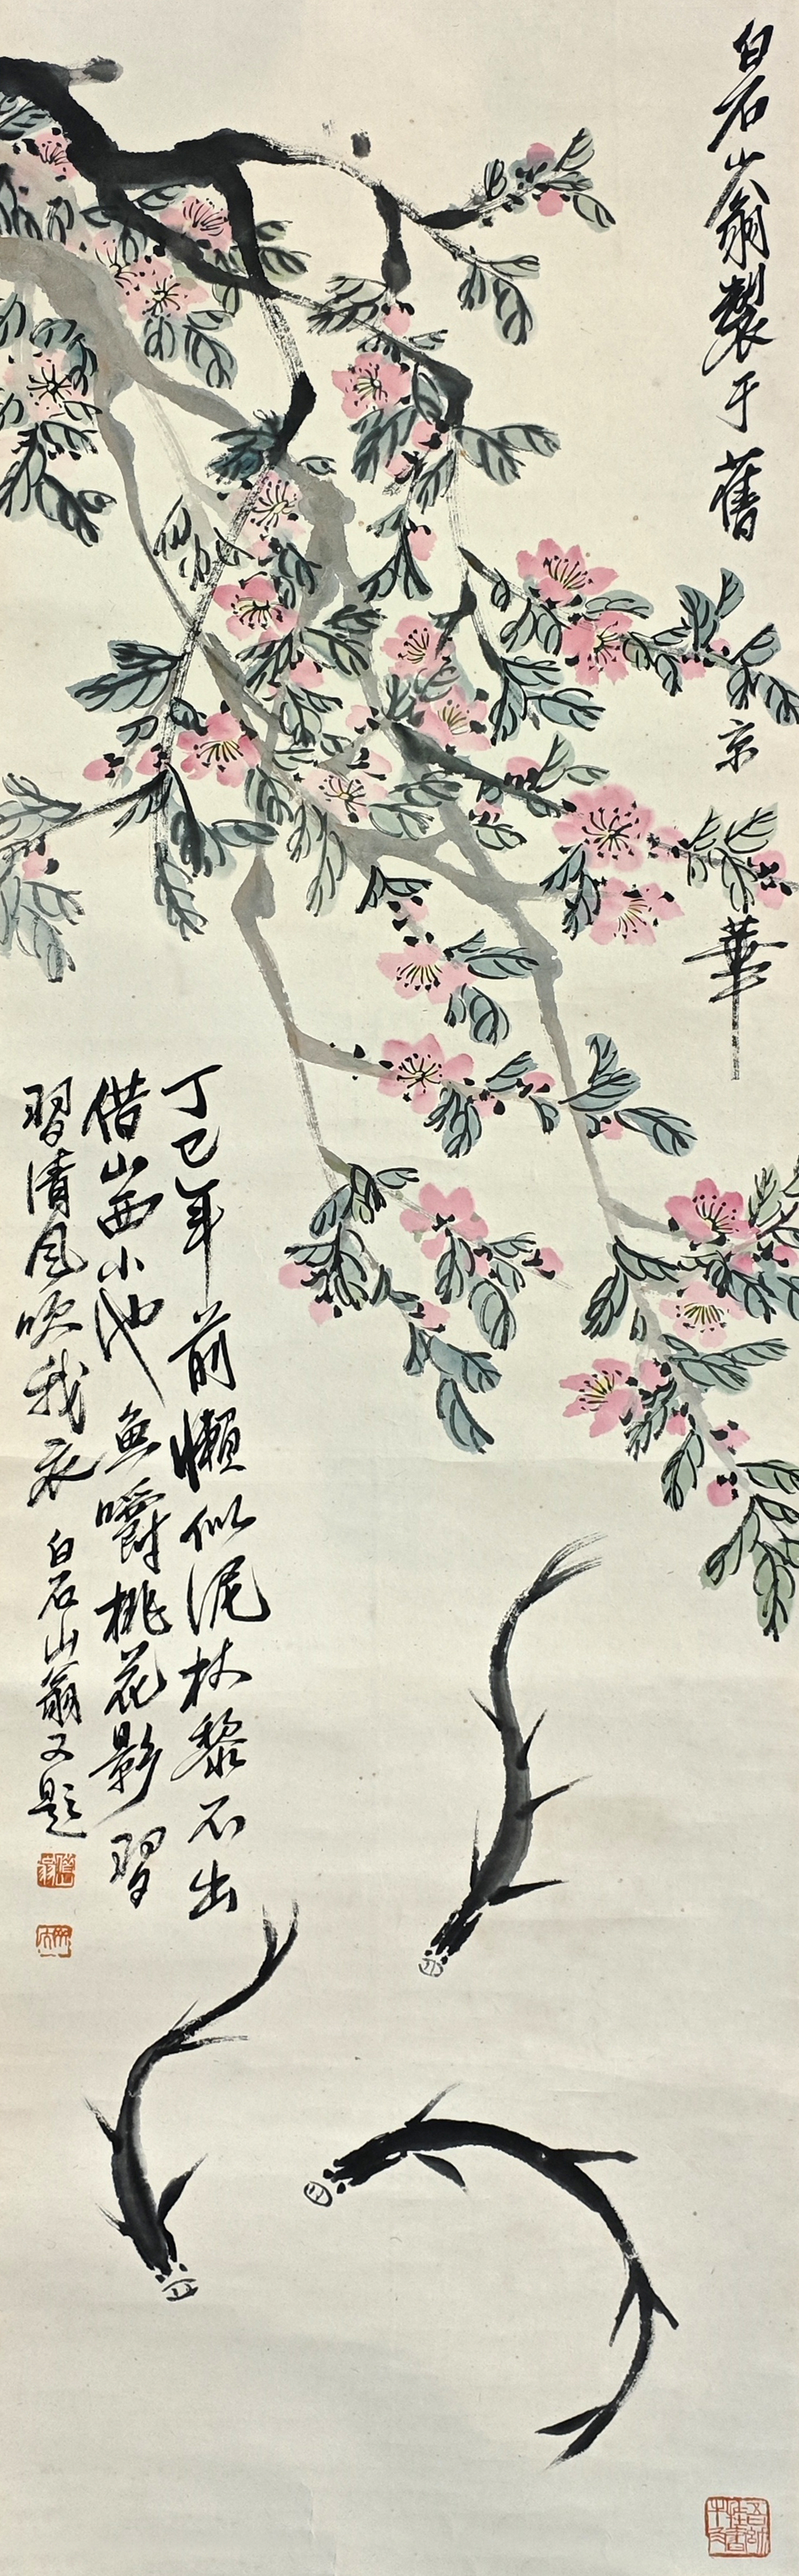 白石山翁製于舊京華
丁巳年前懶似泥杖黎不出
借山西小池魚嚼桃花影習
習清風吹我衣白石山翁又題